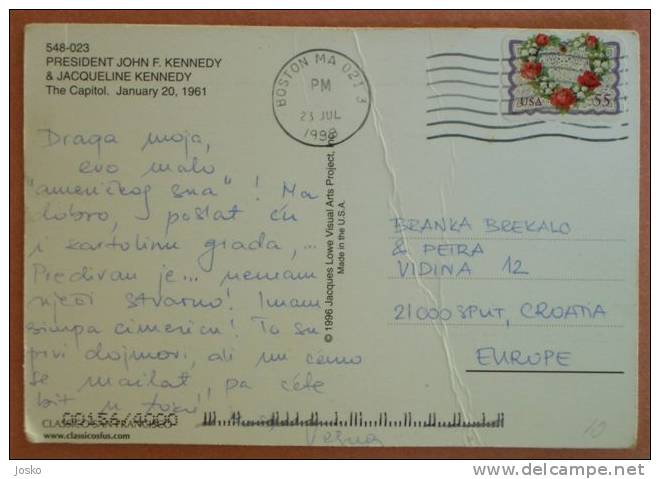 548-023
PRESIDENT JOHN F. KENNEDY
& JACQUELINE KENNEDY
The Capitol. January 20, 1961
BOSTON MA 021 3
PM
23 JUL
1998
USA 55
Draga moja,
evo malo
"američkog sna"! Ma
dobro, poslat ću
i kartolinu grada,...
Predivan je... nemam
riječi stvarno! Imam
simpa cimericu! To su
prvi dojmovi, ali mi ćemo
se mailat, pa ćete
bit u toku!
Vesna
© 1996 Jacques Lowe Visual Arts Project, Inc.
Made in the U.S.A.
BRANKA BREKALO
& PETRA
VIDINA 12
21000 SPLIT, CROATIA
EUROPE
CLASSICO SAN FRANCISCO
www.classicosfus.com
10
Josko
delcampe.net